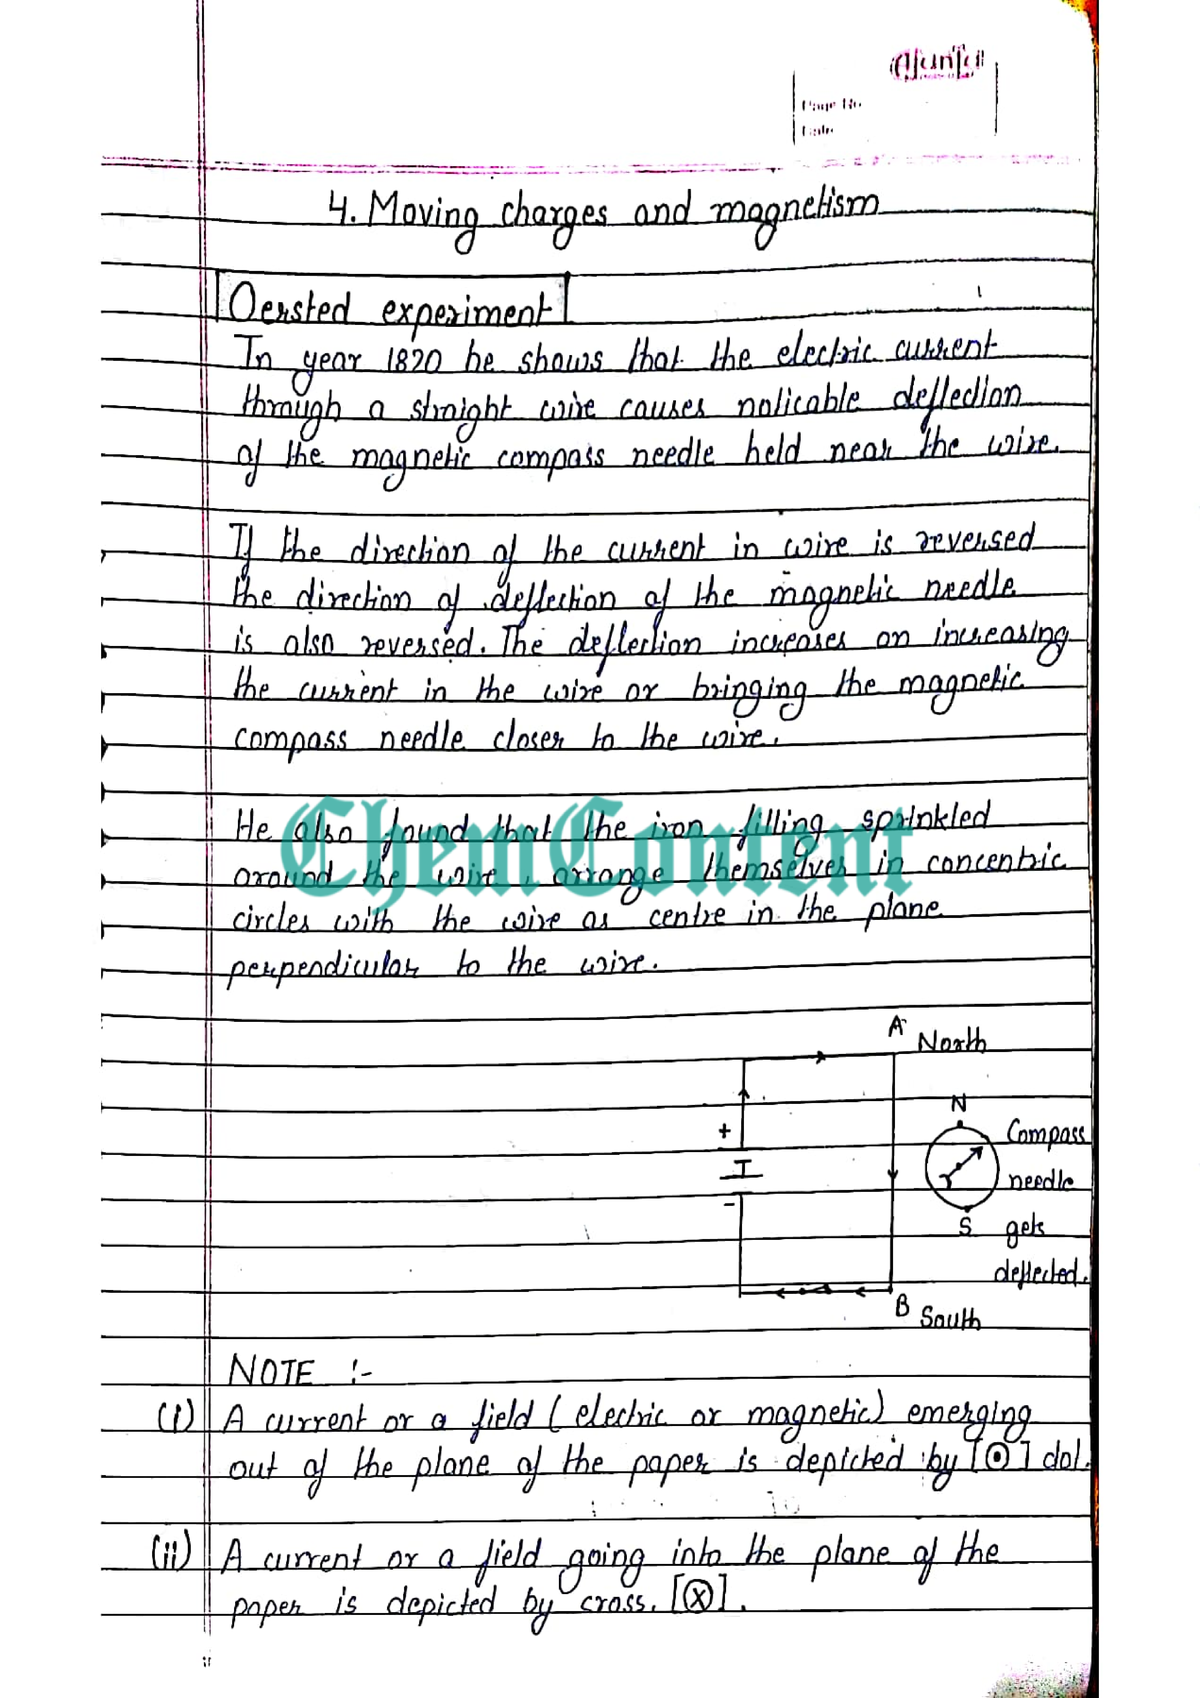 Ajanta
Page No.
Date
4. Moving charges and magnetism
Oersted experiment
In year 1820 he shows that the electric current
through a straight wire causes noticable deflection
of the magnetic compass needle held near the wire.
If the direction of the current in wire is reversed
the direction of deflection of the magnetic needle
is also reversed. The deflection increases on increasing
the current in the wire or bringing the magnetic
compass needle closer to the wire.
He also found that the iron filling sprinkled
around the wire, arrange themselves in concentric
circles with the wire as centre in the plane
perpendicular to the wire.
ChemContent
A North
N
+
Compass
I
needle
-
S gets
deflected.
B South
NOTE :-
(i) A current or a field (electric or magnetic) emerging
out of the plane of the paper is depicted by [⊙] dot.
(ii) A current or a field going into the plane of the
paper is depicted by cross. [⊗].